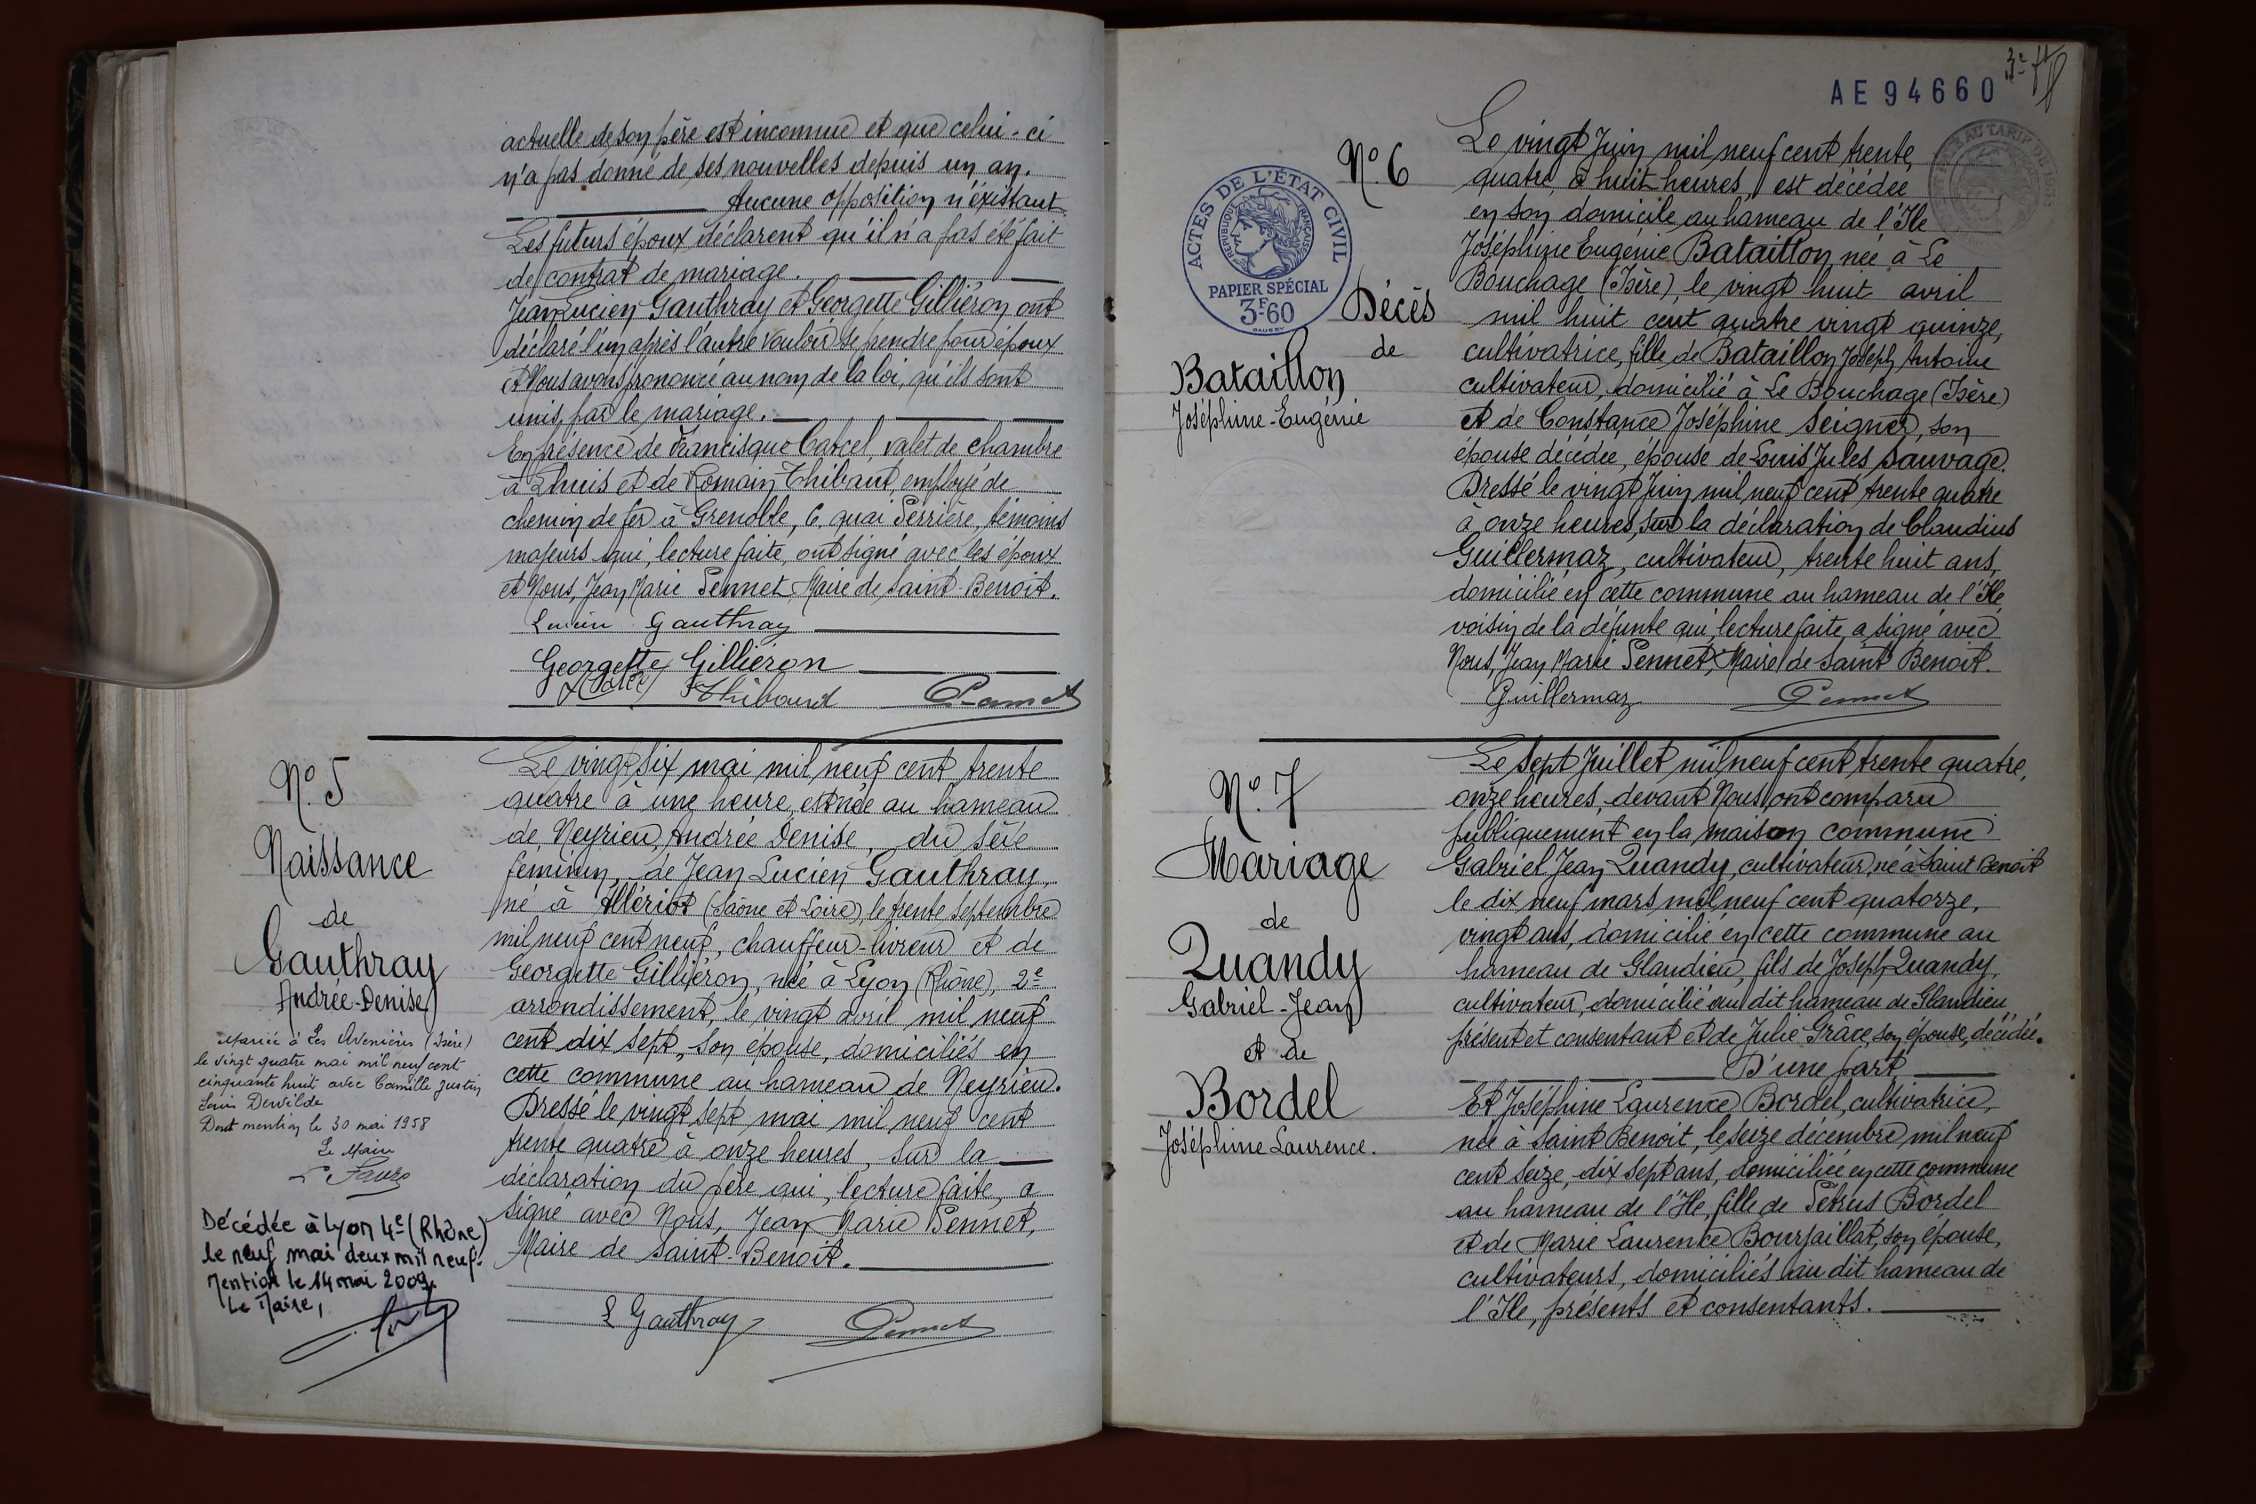 actuelle de son père est inconnue et que celui-ci
n'a pas donné de ses nouvelles depuis un an.
Aucune opposition n'éxistant.
Les futurs époux déclarent qu'il n'a pas été fait
de contrat de mariage.
Jean Lucien Gauthray et Georgette Gilliéron ont
déclaré l'un après l'autre vouloir se prendre pour époux
et Nous avons prononcé au nom de la loi, qu'ils sont
unis par le mariage.
En présence de Francisque Carcel, valet de chambre
à Lhuis et de Romain Thibaut, employé de
chemin de fer à Grenoble, 6, quai Perrière, témoins
majeurs qui, lecture faite, ont signé avec les époux
et Nous, Jean Marie Pennet, Maire de Saint-Benoit.
Lucien Gauthray
Georgette Gilliéron
Thibaud Pennet
N° 5
Naissance
de
Gauthray
Andrée-Denise
Mariée à Les Avenières (Isère)
le vingt quatre mai mil neuf cent
cinquante huit avec Camille Justin
Louis Dewilde
Dont mention le 30 mai 1958
Le Maire
Décédée à Lyon 4e (Rhône)
le neuf mai deux mil neuf.
Mention le 14 mai 2009.
Le Maire,
Le vingt six mai mil neuf cent trente
quatre à une heure, est née au hameau
de Neyrieu, Andrée Denise, du sexe
féminin, de Jean Lucien Gauthray,
né à Allériot (Saône et Loire), le trente septembre
mil neuf cent neuf, chauffeur-livreur et de
Georgette Gilliéron, née à Lyon (Rhône), 2e
arrondissement, le vingt avril mil neuf
cent dix sept, son épouse, domiciliés en
cette commune au hameau de Neyrieu.
Dressé le vingt sept mai mil neuf cent
trente quatre à onze heures, sur la
déclaration du père qui, lecture faite, a
signé avec Nous, Jean Marie Pennet,
Maire de Saint-Benoit.
L Gauthray Pennet
AE 94660
N° 6
ACTES DE L'ÉTAT CIVIL
RÉPUBLIQUE FRANÇAISE
PAPIER SPÉCIAL
3F60
Décès
de
Bataillon
Joséphine-Eugénie
Le vingt Juin mil neuf cent trente
quatre, à huit heures, est décédée
en son domicile au hameau de l'Ile
Joséphine Eugénie Bataillon née à Le
Bouchage (Isère), le vingt huit avril
mil huit cent quatre vingt quinze,
cultivatrice, fille de Bataillon Joseph, Antoine
cultivateur, domicilié à Le Bouchage (Isère)
et de Constance Joséphine Seigner, son
épouse décédée, épouse de Louis Jules Sauvage.
Dressé le vingt Juin mil neuf cent trente quatre
à onze heures, sur la déclaration de Claudius
Guillermaz, cultivateur, trente huit ans,
domicilié en cette commune au hameau de l'Ile
voisin de la défunte qui, lecture faite, a signé avec
Nous, Jean Marie Pennet, Maire de Saint Benoit.
Guillermaz Pennet
N° 7
Mariage
de
Quandy
Gabriel-Jean
et de
Bordel
Joséphine Laurence.
Le sept Juillet mil neuf cent trente quatre,
onze heures, devant Nous ont comparu
publiquement en la maison commune
Gabriel Jean Quandy, cultivateur, né à Saint Benoit
le dix neuf mars mil neuf cent quatorze,
vingt ans, domicilié en cette commune au
hameau de Glandieu, fils de Joseph Quandy,
cultivateur, domicilié au dit hameau de Glandieu
présent et consentant et de Julie Grâce, son épouse, décédée.
D'une part,
Et Joséphine Laurence Bordel, cultivatrice,
née à Saint Benoit, le seize décembre mil neuf
cent seize, dix sept ans, domiciliée en cette commune
au hameau de l'Ile, fille de Pétrus Bordel
et de Marie Laurence Bourjaillat, son épouse,
cultivateurs, domiciliés au dit hameau de
l'Ile, présents et consentants.